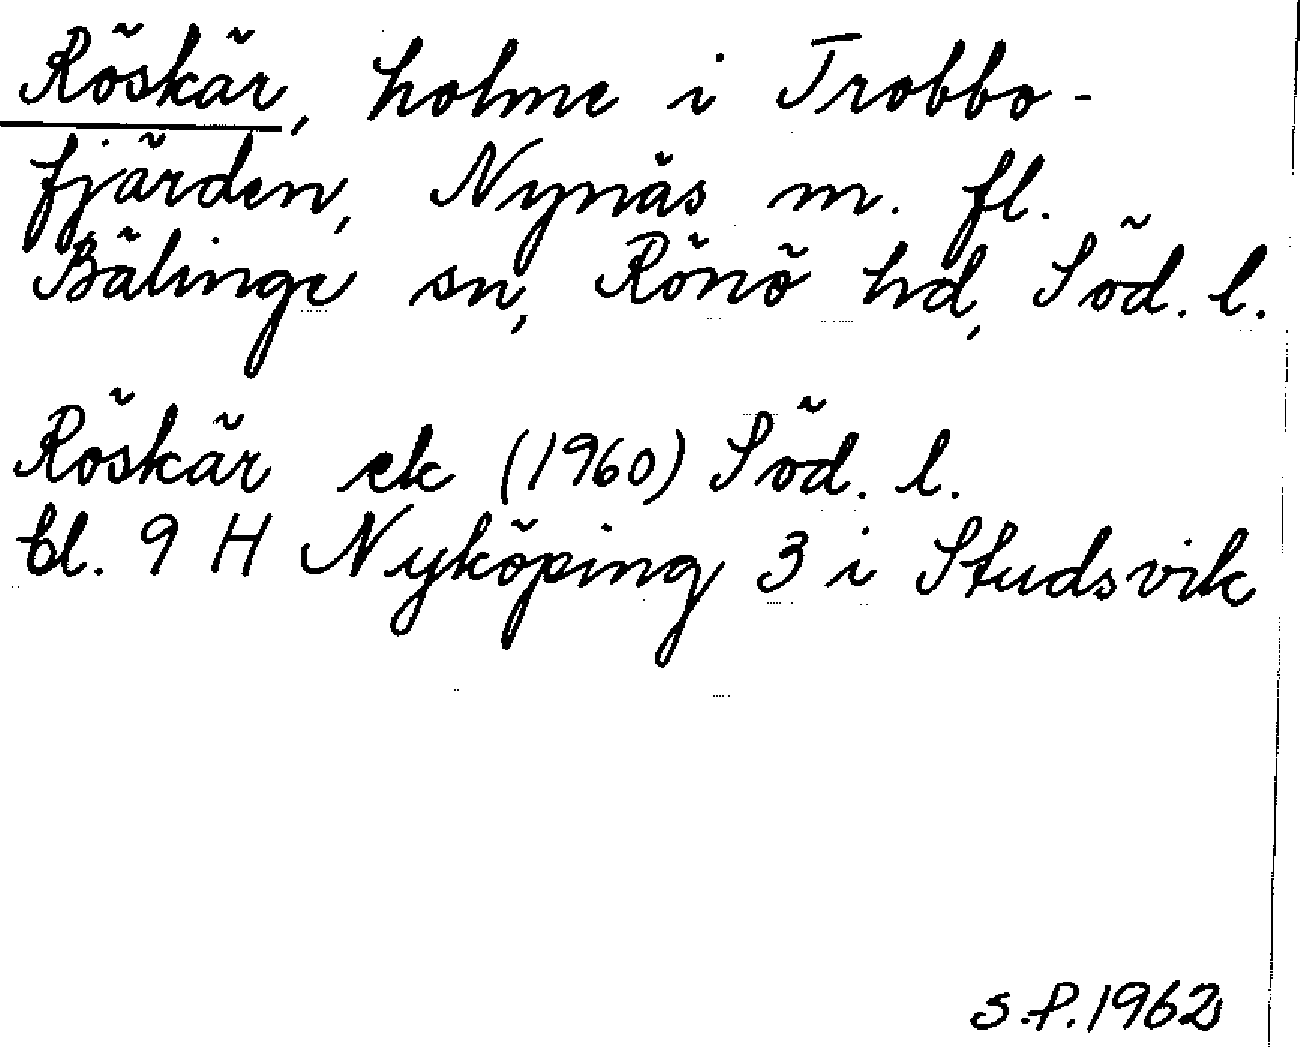 Röskär, holme i Trobbo-
fjärden, Nynäs m. fl.
Bälinge sn, Rönö hd, Söd. l.
Röskär ek (1960) Söd. l.
bl. 9 H Nyköping 3 i Studsvik
S.P. 1962